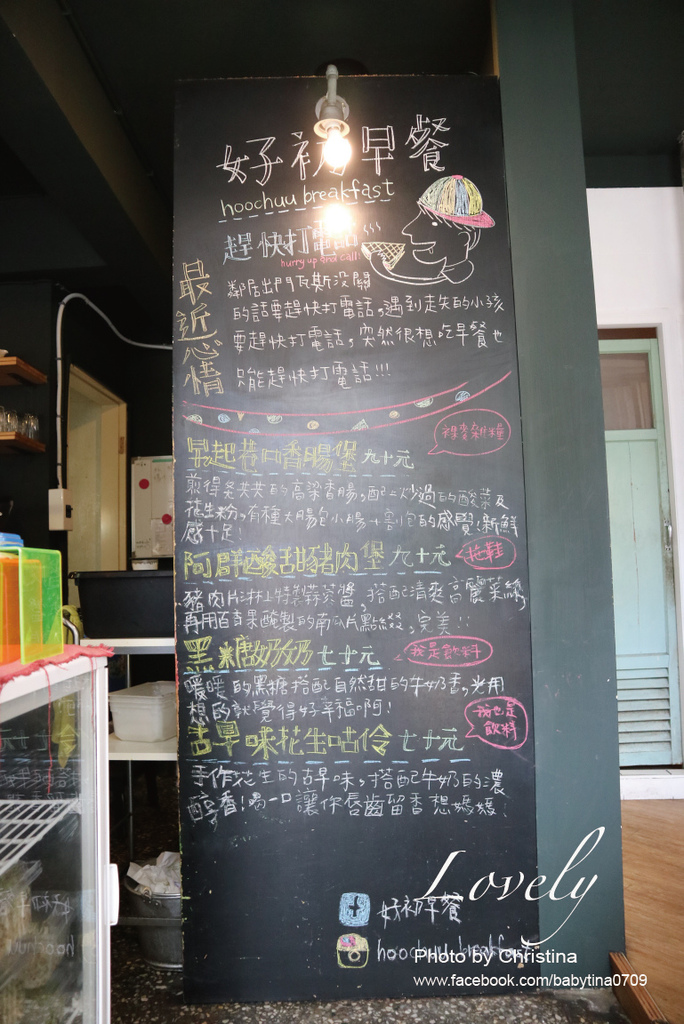 好初早餐
hoochuu breakfast
趕快打電話
hurry up and call!
最近心情
鄰居出門瓦斯沒關
的話要趕快打電話,遇到走失的小孩
要趕快打電話,突然很想吃早餐也
只能趕快打電話!!!
裸麥雜糧
早起巷口香腸堡 九十元
煎得 的高粱香腸,配二炒過的酸菜及
花生粉,有種大腸包小腸+割包的感覺!新鮮
感十足!
阿群酸甜豬肉堡 九十元
拖鞋
豬肉片淋上特製蒜蓉醬,搭配清爽高麗菜絲,
再用百香果醃製的南瓜片點綴,完美!!
黑糖奶奶 七十元
我是飲料
暖暖的黑糖搭配自然甜的牛奶香,光用
想的就覺得好幸福啊!
古早味花生咕伶 七十元
我也是
飲料
手作花生的古早味,搭配牛奶的濃
醇香!喝一口讓你唇齒留香想媽媽!
好初早餐
hoochuu breakfast
Lovely
Photo by Christina
www.facebook.com/babytina0709